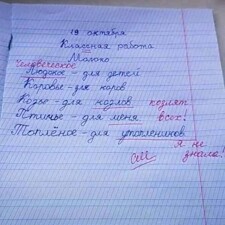 19 октября
Классная работа
Молоко
Человеческое
Людское - для детей
Коровье - для коров
Козье - для козлов козлят
Птичье - для меня всех!
Топлёное - для утопленников
я не
знала!